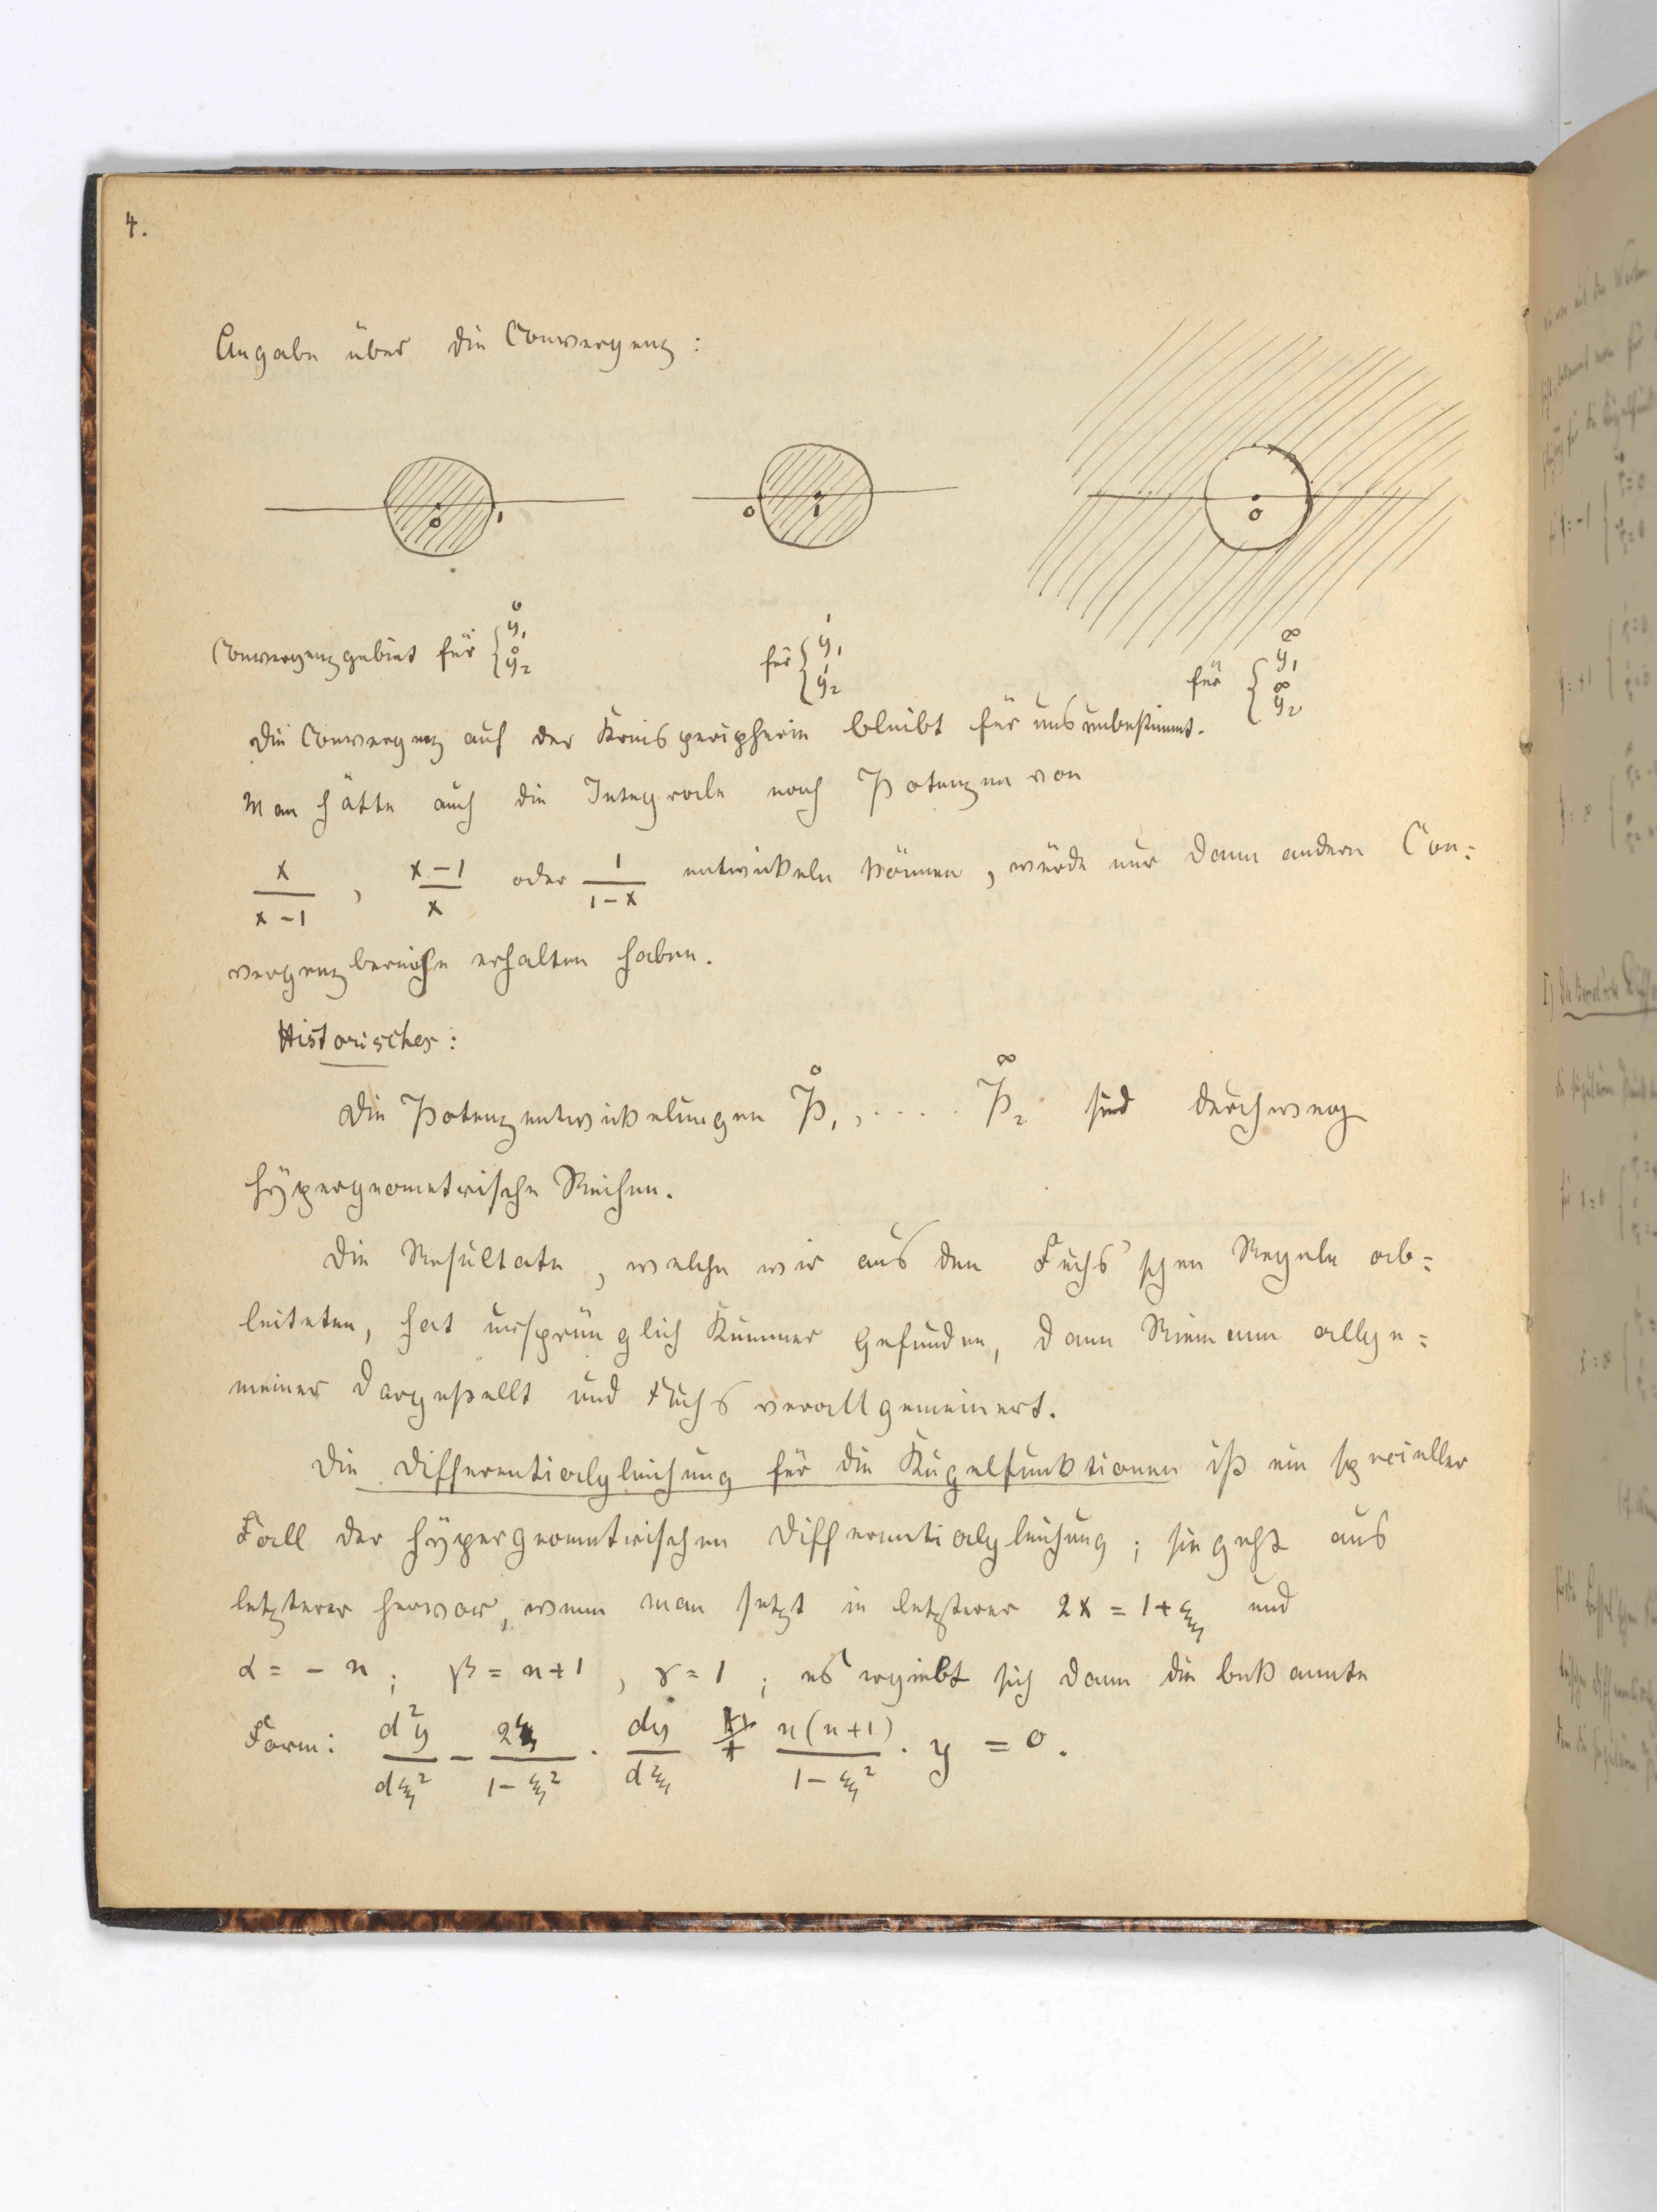 4.
Angabe über die Convergenz:
0 1
0 1
0
Convergenzgebiet für { ẙ₁ ẙ₂
für { y₁¹ y₂¹
für { y₁^∞ y₂^∞
Die Convergenz auf der Kreisperipherie bleibt für uns unbestimmt.
Man hätte auch die Integrale nach Potenzen von
x/(x-1), (x-1)/x oder 1/(1-x) entwickeln können, würde nur dann andere Con=
vergenzbereiche erhalten haben.
Historisches:
Die Potenzentwickelungen P̊₁, .... P₂^∞ sind durchweg
hypergeometrische Reihen.
Die Resultate, welche wir aus den Fuchs'schen Regeln ab=
leiteten, hat ursprünglich Kummer gefunden, dann Riemann allge=
meiner dargestellt und Fuchs verallgemeinert.
Die Differentialgleichung für die Kugelfunktionen ist ein specieller
Fall der hypergeometrischen Differentialgleichung; sie geht aus
letzterer hervor, wenn man setzt in letzterer 2x = 1+ξ und
α = - n; β = n+1, γ = 1; es ergiebt sich dann die bekannte
Form: d²y/dξ² - 2ξ/(1-ξ²) · dy/dξ + n(n+1)/(1-ξ²) · y = 0.